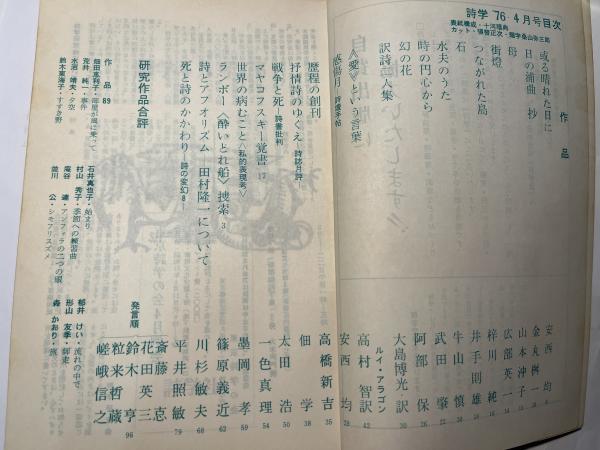 詩学 '76・4月号目次
表紙構成・十河雅典
カット・領智正次・題字桑山弥三郎
作品
或る晴れた日に 安西均 6
日の浦曲 抄 金丸桝一
母 山本沖子
街燈 広部英一 14
つながれた島 梓川純一
石 井手則雄
水夫のうた 牛山慎
時の円心から 武田肇
幻の花 阿部保 28
訳詩 三人集 大島博光訳 30
ルイ・アラゴン
〈愛〉という言葉 高村智訳 42
感傷月 詩書手帖 安西均 35
歴程の創刊 高橋新吉 35
抒情詩のゆくえ―詩誌月評― 佃学 38
戦争と死 詩書批判 太田浩 50
マヤコフスキー覚書 17 一色真理 54
世界の病むこと〈私的表現考〉 墨岡孝 59
ランボー〈酔いどれ船〉捜索 3 篠原義近 62
詩とアフォリズム―田村隆一について 川杉敏夫 68
死と詩のかかわり―詩の変幻8― 平井照敏 79
研究作品合評
発言順
斎藤怘
花田英三
鈴木亨
粒来哲蔵
嵯峨信之 96
作品 89
畑田恵利子・部屋が風に乗って
荒井純一・事件
水沼靖夫・夕空
鈴木東海子・すすき野
石井真也子・始まり
村山秀子・季節への練習曲
庵谷連・アンフォラの二つの眼
並川公・シモアリスズメ
稲井けい・流れの中で
形山友孝・師走
森かおり・旅